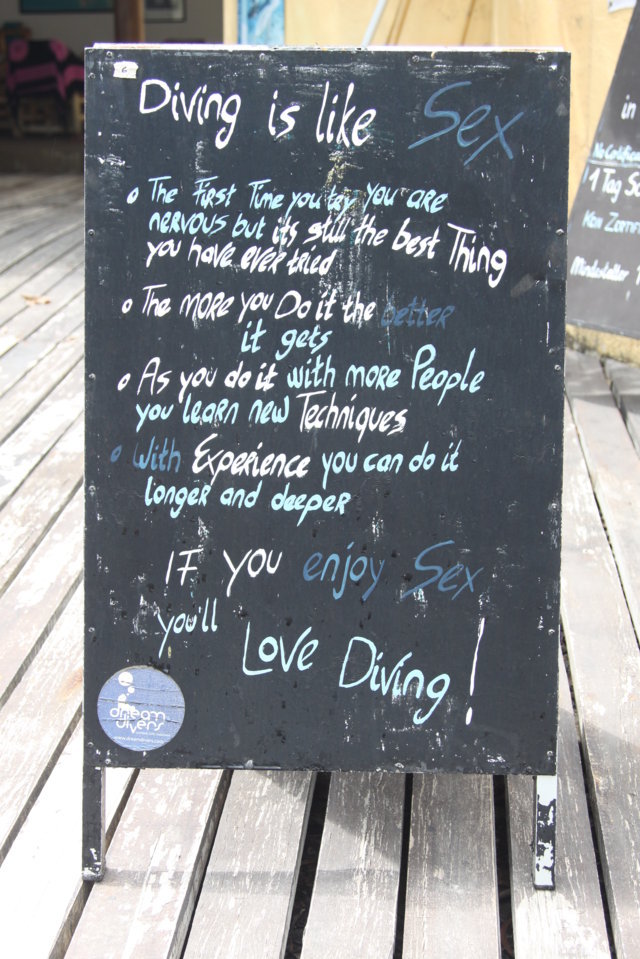 6
Diving is like Sex
The First Time you try you are
nervous but its still the best Thing
you have ever tried
The more you Do it the better
it gets
As you do it with more People
you learn new Techniques
With Experience you can do it
longer and deeper
If you enjoy Sex
you'll
Love Diving!
dream
divers
in
1 Tag